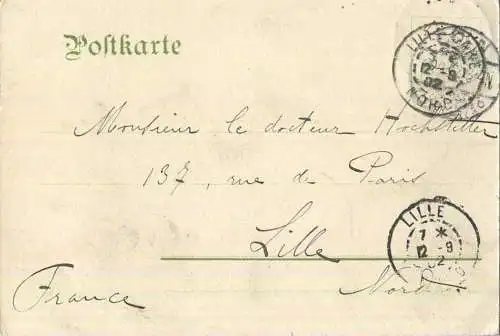 Postkarte
LILLE GARE
12 - 9
02
NORD
Monsieur le docteur Hochstetter
137, rue de Paris
LILLE
7 *
12 - 9
02
Lille
Nord
France